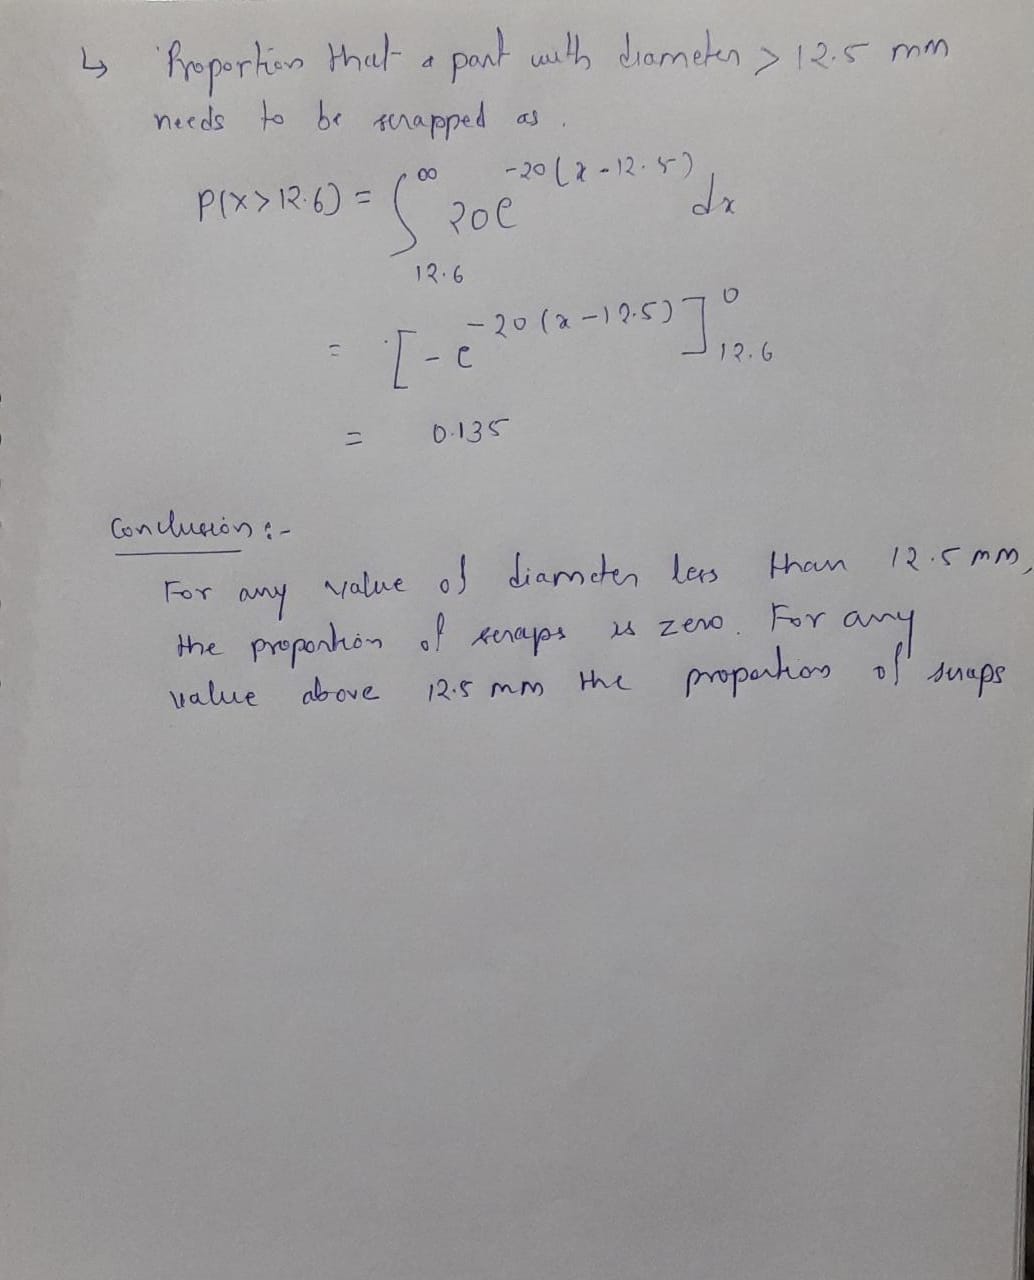 ↳ Proportion that a part with diameter > 12.5 mm
needs to be scrapped as .
P(X>12.6) = ∫ ∞ 20e -20(x-12.5) dx
12.6
= [-e -20(x-12.5)] 0
12.6
= 0.135
Conclusion :-
For any value of diameter less than 12.5 mm,
the proportion of scraps is zero. For any
value above 12.5 mm the proportion of scraps